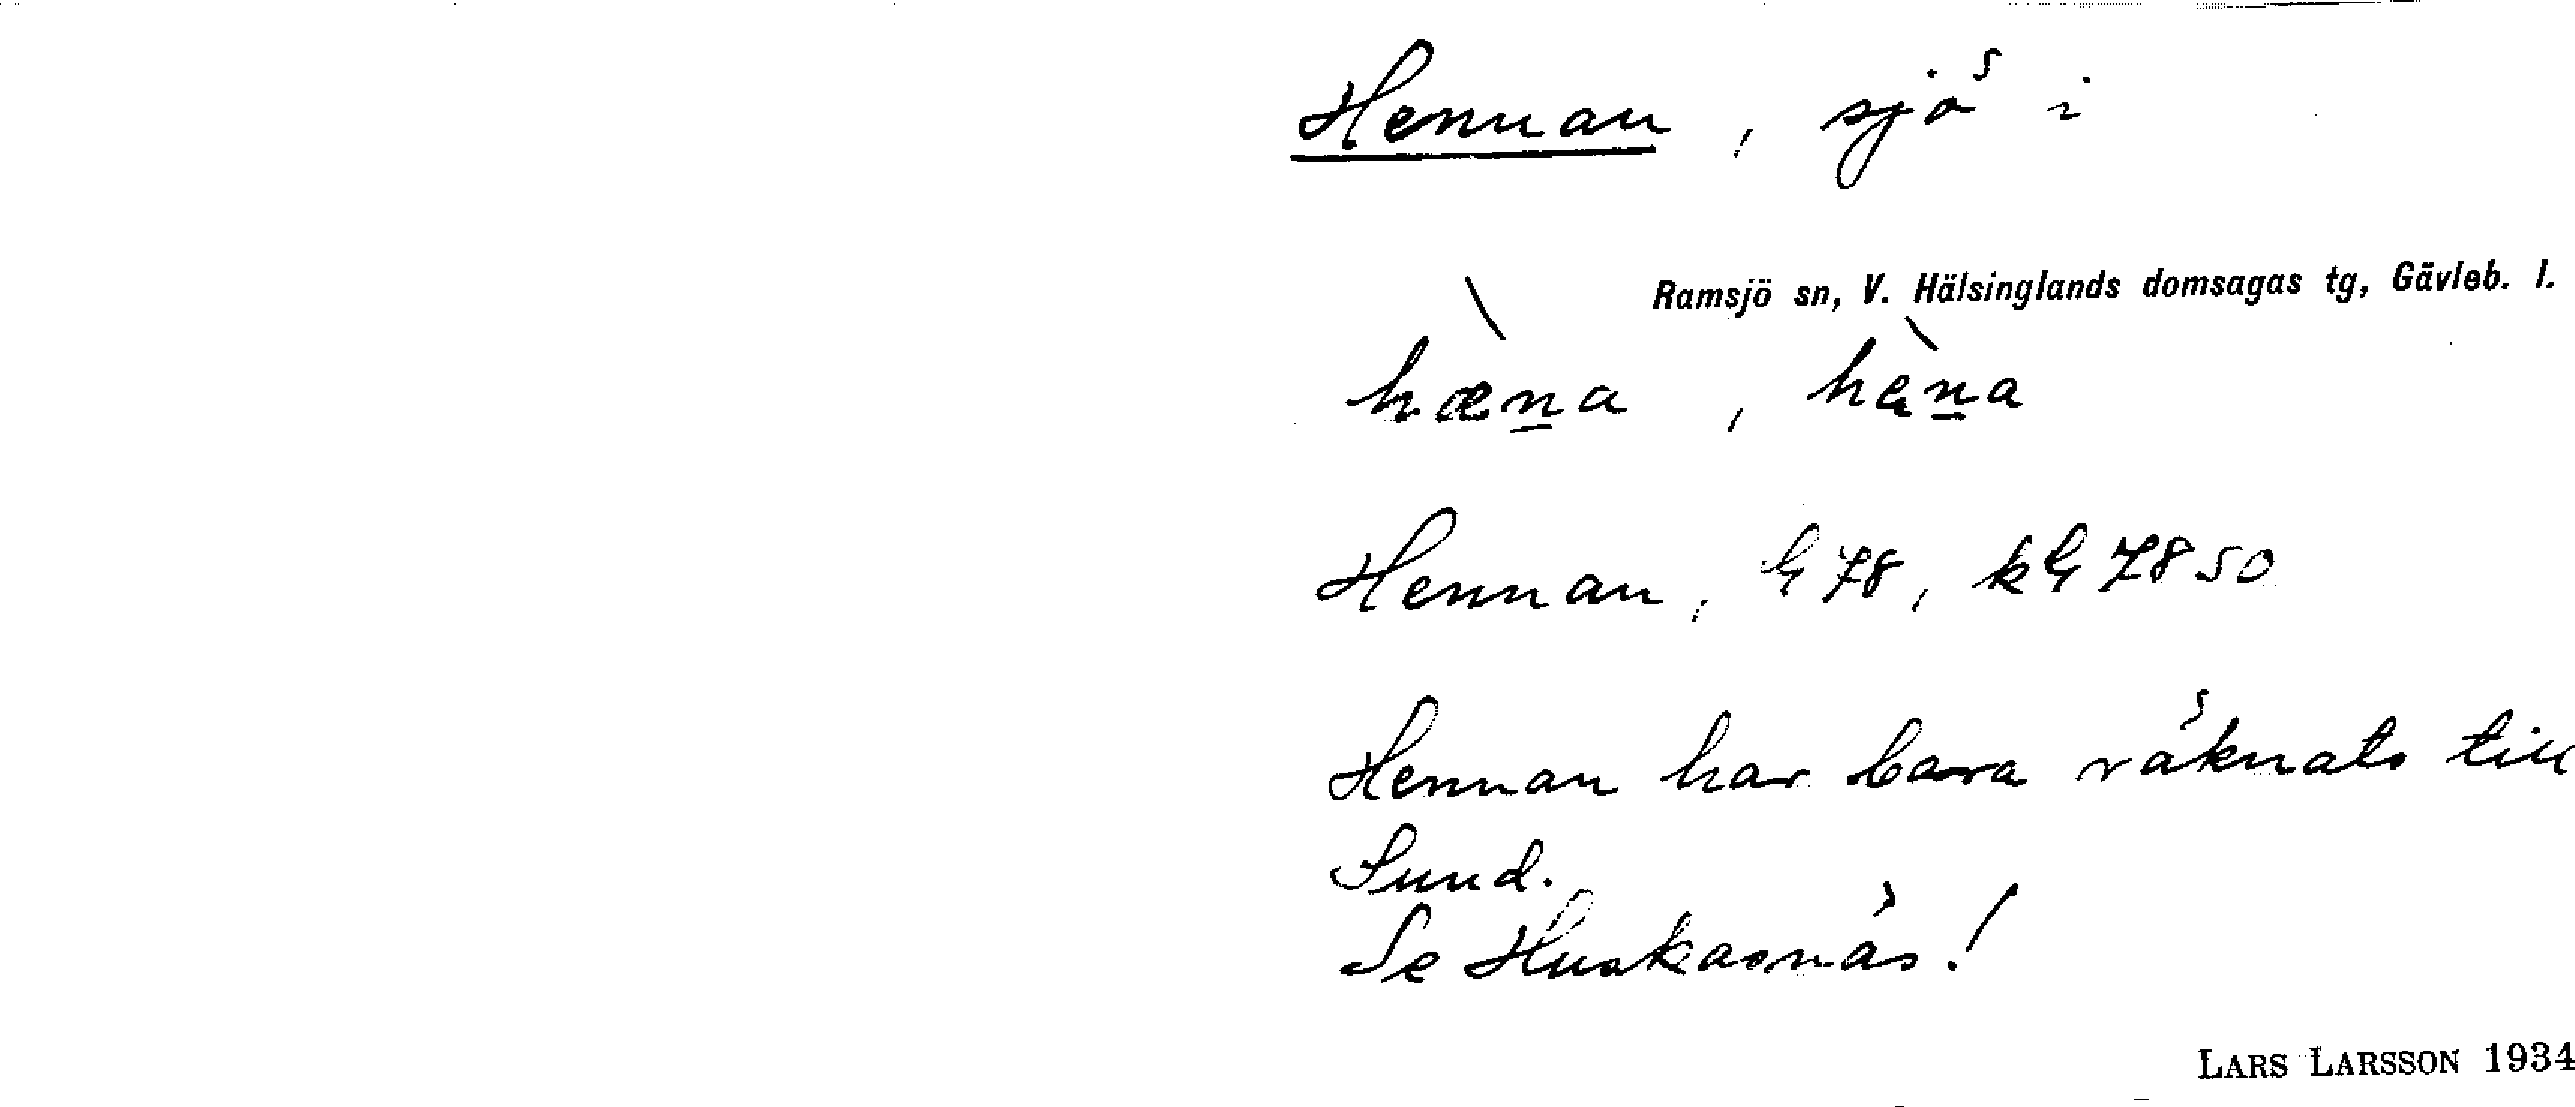 Hennan, sjö i
Ramsjö sn, V. Hälsinglands domsagas tg, Gävleb. l.
hæ̀na, hèna
Hennan, G 78, kG 78 50
Hennan har bara räknats till
Sund.
Se Huskasnäs!
LARS LARSSON 1934